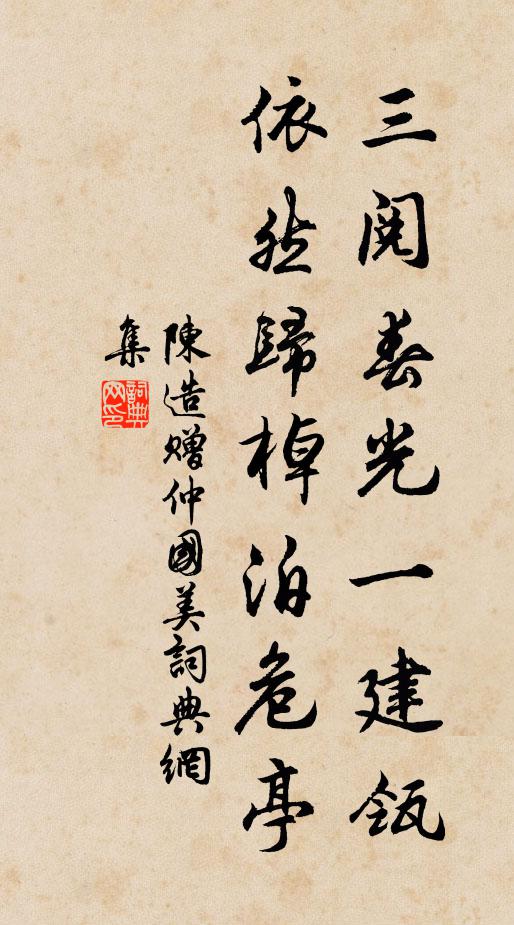 三閱春光一建瓴
依然歸棹泊危亭
陳造贈仲國美詞典網
集
詞典网印